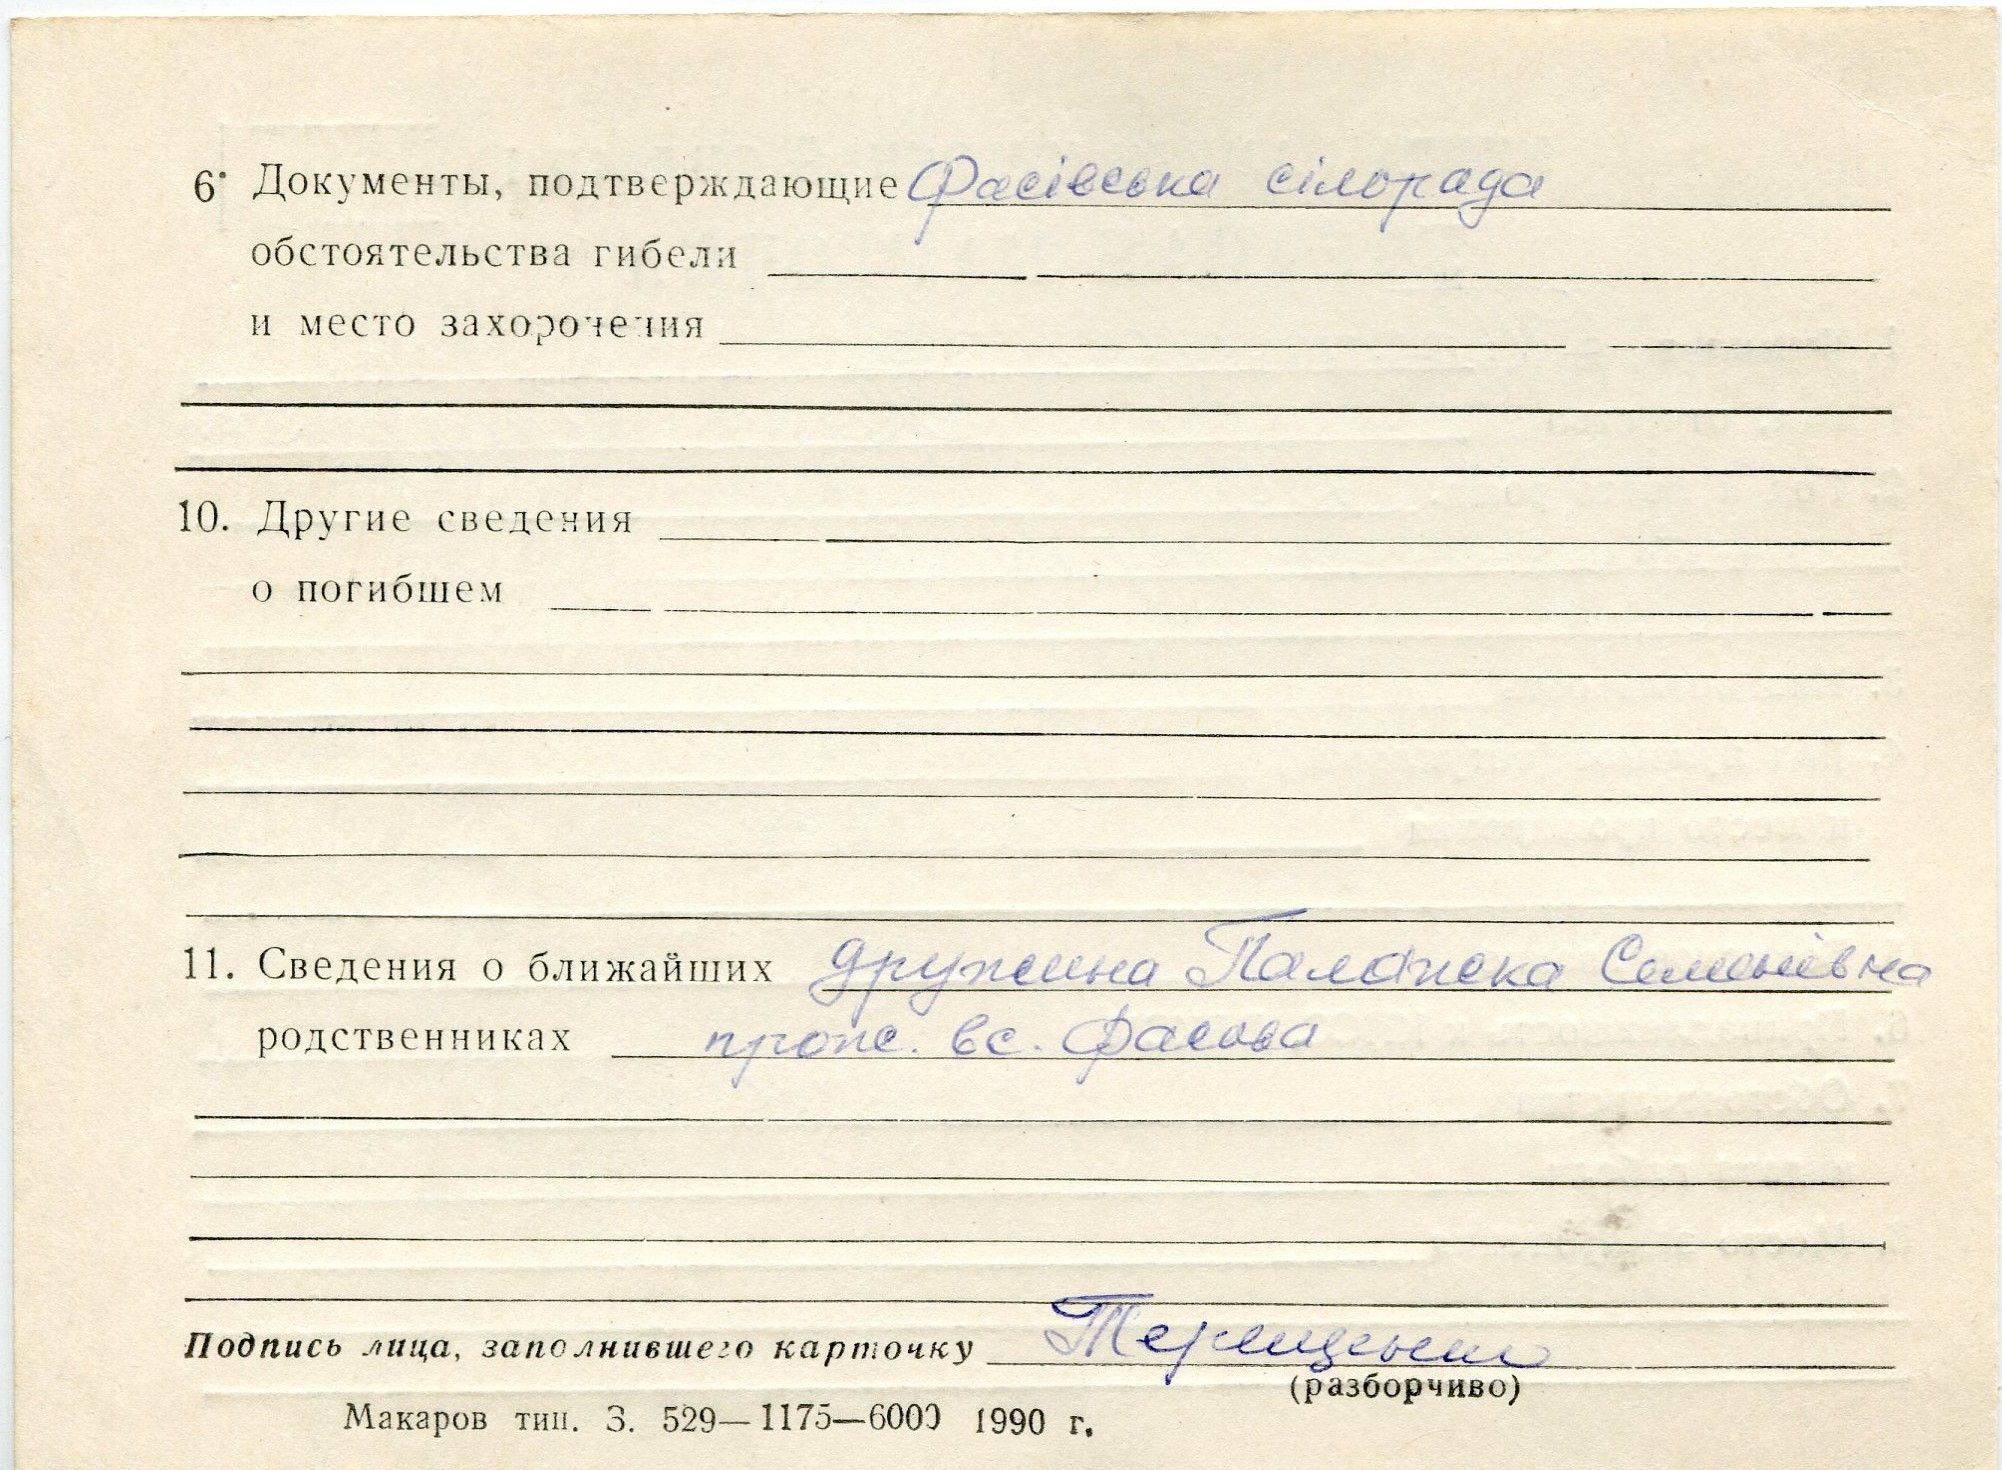 6. Документы, подтверждающие Фасівська сілорада
обстоятельства гибели
и место захоронения
10. Другие сведения
о погибшем
11. Сведения о ближайших дружина Палажка Семенівна
родственниках прож. в с. Фасова
Подпись лица, заполнившего карточку
(разборчиво)
Макаров тип. З. 529—1175—6000 1990 г.